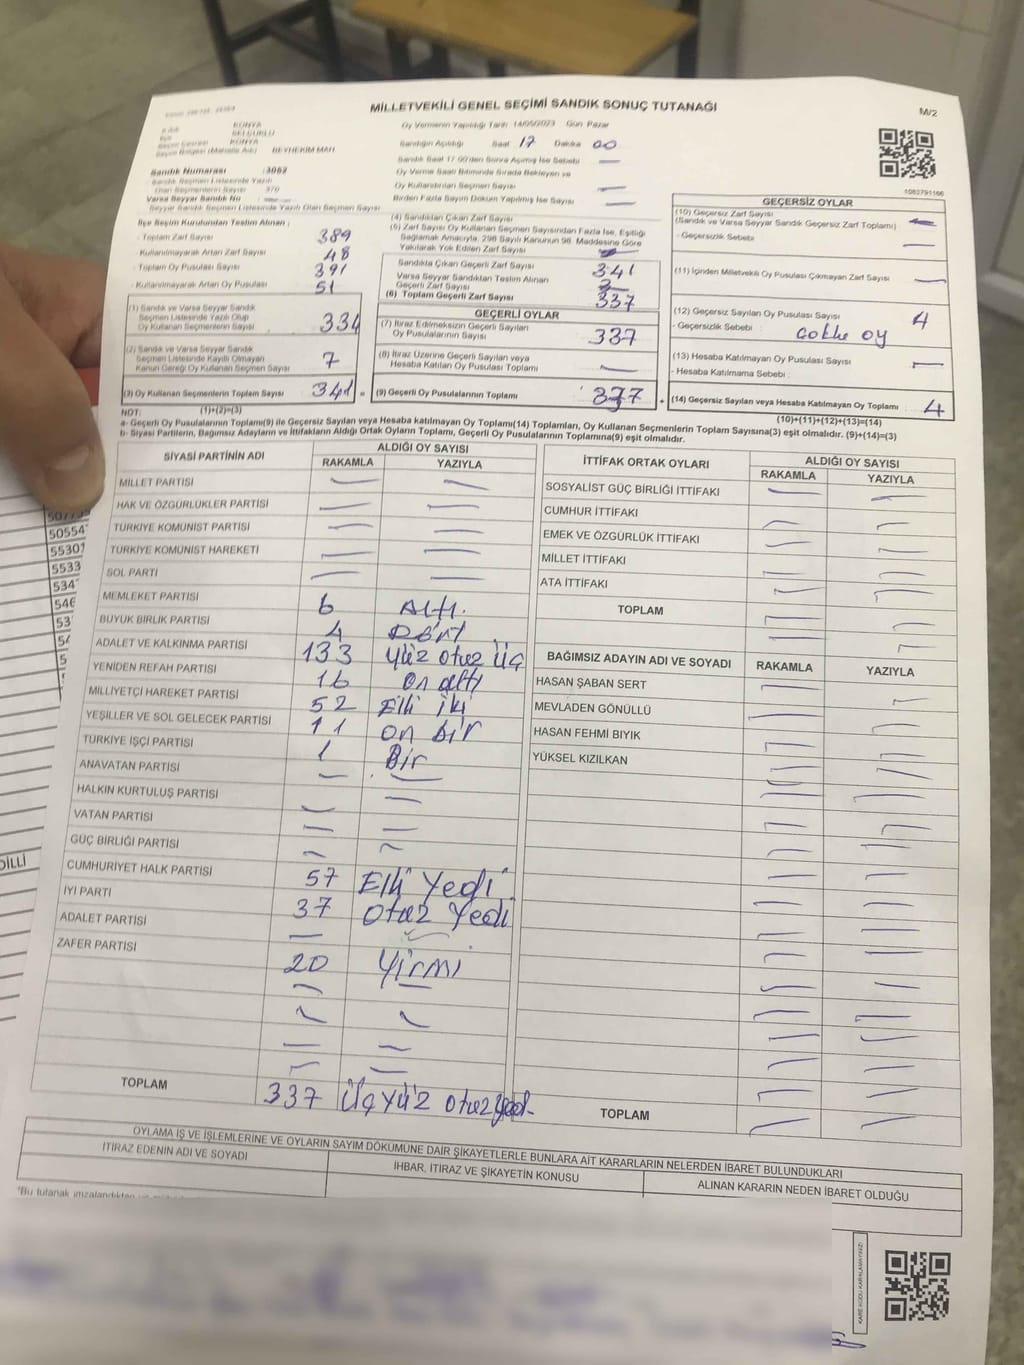 MİLLETVEKİLİ GENEL SEÇİMİ SANDIK SONUÇ TUTANAĞI
M/2
KONYA
SELÇUKLU
KONYA
BEYHEKİM MAH
Oy Vermenin Yapıldığı Tarih 14/05/2023 Gün Pazar
Sandığın Açıldığı Saat 17 Dakika 00
Sandık Saat 17:00'den Sonra Açılmış İse Sebebi —
Oy Verme Saati Bitiminde Sırada Bekleyen ve
Oy Kullandırılan Seçmen Sayısı —
Birden Fazla Sayım Döküm Yapılmış İse Sayısı —
1083791166
Sandık Numarası : 3082
Sandık Seçmen Listesinde Yazılı
Olan Seçmenlerin Sayısı 370
Varsa Seyyar Sandık No —
Seyyar Sandık Seçmen Listesinde Yazılı Olan Seçmen Sayısı
İlçe Seçim Kurulundan Teslim Alınan :
- Toplam Zarf Sayısı 389
- Kullanılmayarak Artan Zarf Sayısı 48
- Toplam Oy Pusulası Sayısı 391
- Kullanılmayarak Artan Oy Pusulası 51
(1) Sandık ve Varsa Seyyar Sandık
Seçmen Listesinde Yazılı Olup
Oy Kullanan Seçmenlerin Sayısı 334
(2) Sandık ve Varsa Seyyar Sandık
Seçmen Listesinde Kayıtlı Olmayan
Kanun Gereği Oy Kullanan Seçmen Sayısı 7
(3) Oy Kullanan Seçmenlerin Toplam Sayısı 341 =
(4) Sandıktan Çıkan Zarf Sayısı
(5) Zarf Sayısı Oy Kullanan Seçmen Sayısından Fazla İse, Eşitliği
Sağlamak Amacıyla, 298 Sayılı Kanunun 98. Maddesine Göre
Yakılarak Yok Edilen Zarf Sayısı
Sandıkta Çıkan Geçerli Zarf Sayısı 341
Varsa Seyyar Sandıktan Teslim Alınan
Geçerli Zarf Sayısı
(6) Toplam Geçerli Zarf Sayısı 337
GEÇERLİ OYLAR
(7) İtiraz Edilmeksizin Geçerli Sayılan
Oy Pusulalarının Sayısı 337
(8) İtiraz Üzerine Geçerli Sayılan veya
Hesaba Katılan Oy Pusulası Toplamı —
(9) Geçerli Oy Pusulalarının Toplamı 337 +
GEÇERSİZ OYLAR
(10) Geçersiz Zarf Sayısı
(Sandık ve Varsa Seyyar Sandık Geçersiz Zarf Toplamı) —
- Geçersizlik Sebebi —
(11) İçinden Milletvekili Oy Pusulası Çıkmayan Zarf Sayısı —
(12) Geçersiz Sayılan Oy Pusulası Sayısı 4
- Geçersizlik Sebebi : oy
(13) Hesaba Katılmayan Oy Pusulası Sayısı —
- Hesaba Katılmama Sebebi :
(14) Geçersiz Sayılan veya Hesaba Katılmayan Oy Toplamı 4
NOT: (1)+(2)=(3)
(10)+(11)+(12)+(13)=(14)
a- Geçerli Oy Pusulalarının Toplamı(9) ile Geçersiz Sayılan veya Hesaba katılmayan Oy Toplamı(14) Toplamları, Oy Kullanan Seçmenlerin Toplam Sayısına(3) eşit olmalıdır. (9)+(14)=(3)
b- Siyasi Partilerin, Bağımsız Adayların ve İttifakların Aldığı Ortak Oyların Toplamı, Geçerli Oy Pusulalarının Toplamına(9) eşit olmalıdır.
SİYASİ PARTİNİN ADI
ALDIĞI OY SAYISI
RAKAMLA YAZIYLA
MİLLET PARTİSİ — —
HAK VE ÖZGÜRLÜKLER PARTİSİ — —
TÜRKİYE KOMÜNİST PARTİSİ — —
TÜRKİYE KOMÜNİST HAREKETİ — —
SOL PARTİ — —
MEMLEKET PARTİSİ 6 Altı.
BÜYÜK BİRLİK PARTİSİ 4 Dört
ADALET VE KALKINMA PARTİSİ 133 Yüz otuz üç
YENİDEN REFAH PARTİSİ 16 on altı
MİLLİYETÇİ HAREKET PARTİSİ 52 Elli iki
YEŞİLLER VE SOL GELECEK PARTİSİ 11 on bir
TÜRKİYE İŞÇİ PARTİSİ 1 Bir
ANAVATAN PARTİSİ — —
HALKIN KURTULUŞ PARTİSİ — —
VATAN PARTİSİ — —
GÜÇ BİRLİĞİ PARTİSİ — —
CUMHURİYET HALK PARTİSİ 57 Elli Yedi
İYİ PARTİ 37 Otuz Yedi
ADALET PARTİSİ — —
ZAFER PARTİSİ 20 Yirmi
TOPLAM 337 Üçyüz otuz yedi
İTTİFAK ORTAK OYLARI
ALDIĞI OY SAYISI
RAKAMLA YAZIYLA
SOSYALİST GÜÇ BİRLİĞİ İTTİFAKI — —
CUMHUR İTTİFAKI — —
EMEK VE ÖZGÜRLÜK İTTİFAKI — —
MİLLET İTTİFAKI — —
ATA İTTİFAKI — —
TOPLAM — —
BAĞIMSIZ ADAYIN ADI VE SOYADI RAKAMLA YAZIYLA
HASAN ŞABAN SERT — —
MEVLADEN GÖNÜLLÜ — —
HASAN FEHMİ BIYIK — —
YÜKSEL KIZILKAN — —
TOPLAM — —
OYLAMA İŞ VE İŞLEMLERİNE VE OYLARIN SAYIM DÖKÜMÜNE DAİR ŞİKAYETLERLE BUNLARA AİT KARARLARIN NELERDEN İBARET BULUNDUKLARI
İTİRAZ EDENİN ADI VE SOYADI
İHBAR, İTİRAZ VE ŞİKAYETİN KONUSU
ALINAN KARARIN NEDEN İBARET OLDUĞU
*Bu tutanak imzalandıktan
KARE KODU KARALAMAYINIZ!
50554
55301
5533
534
546
53